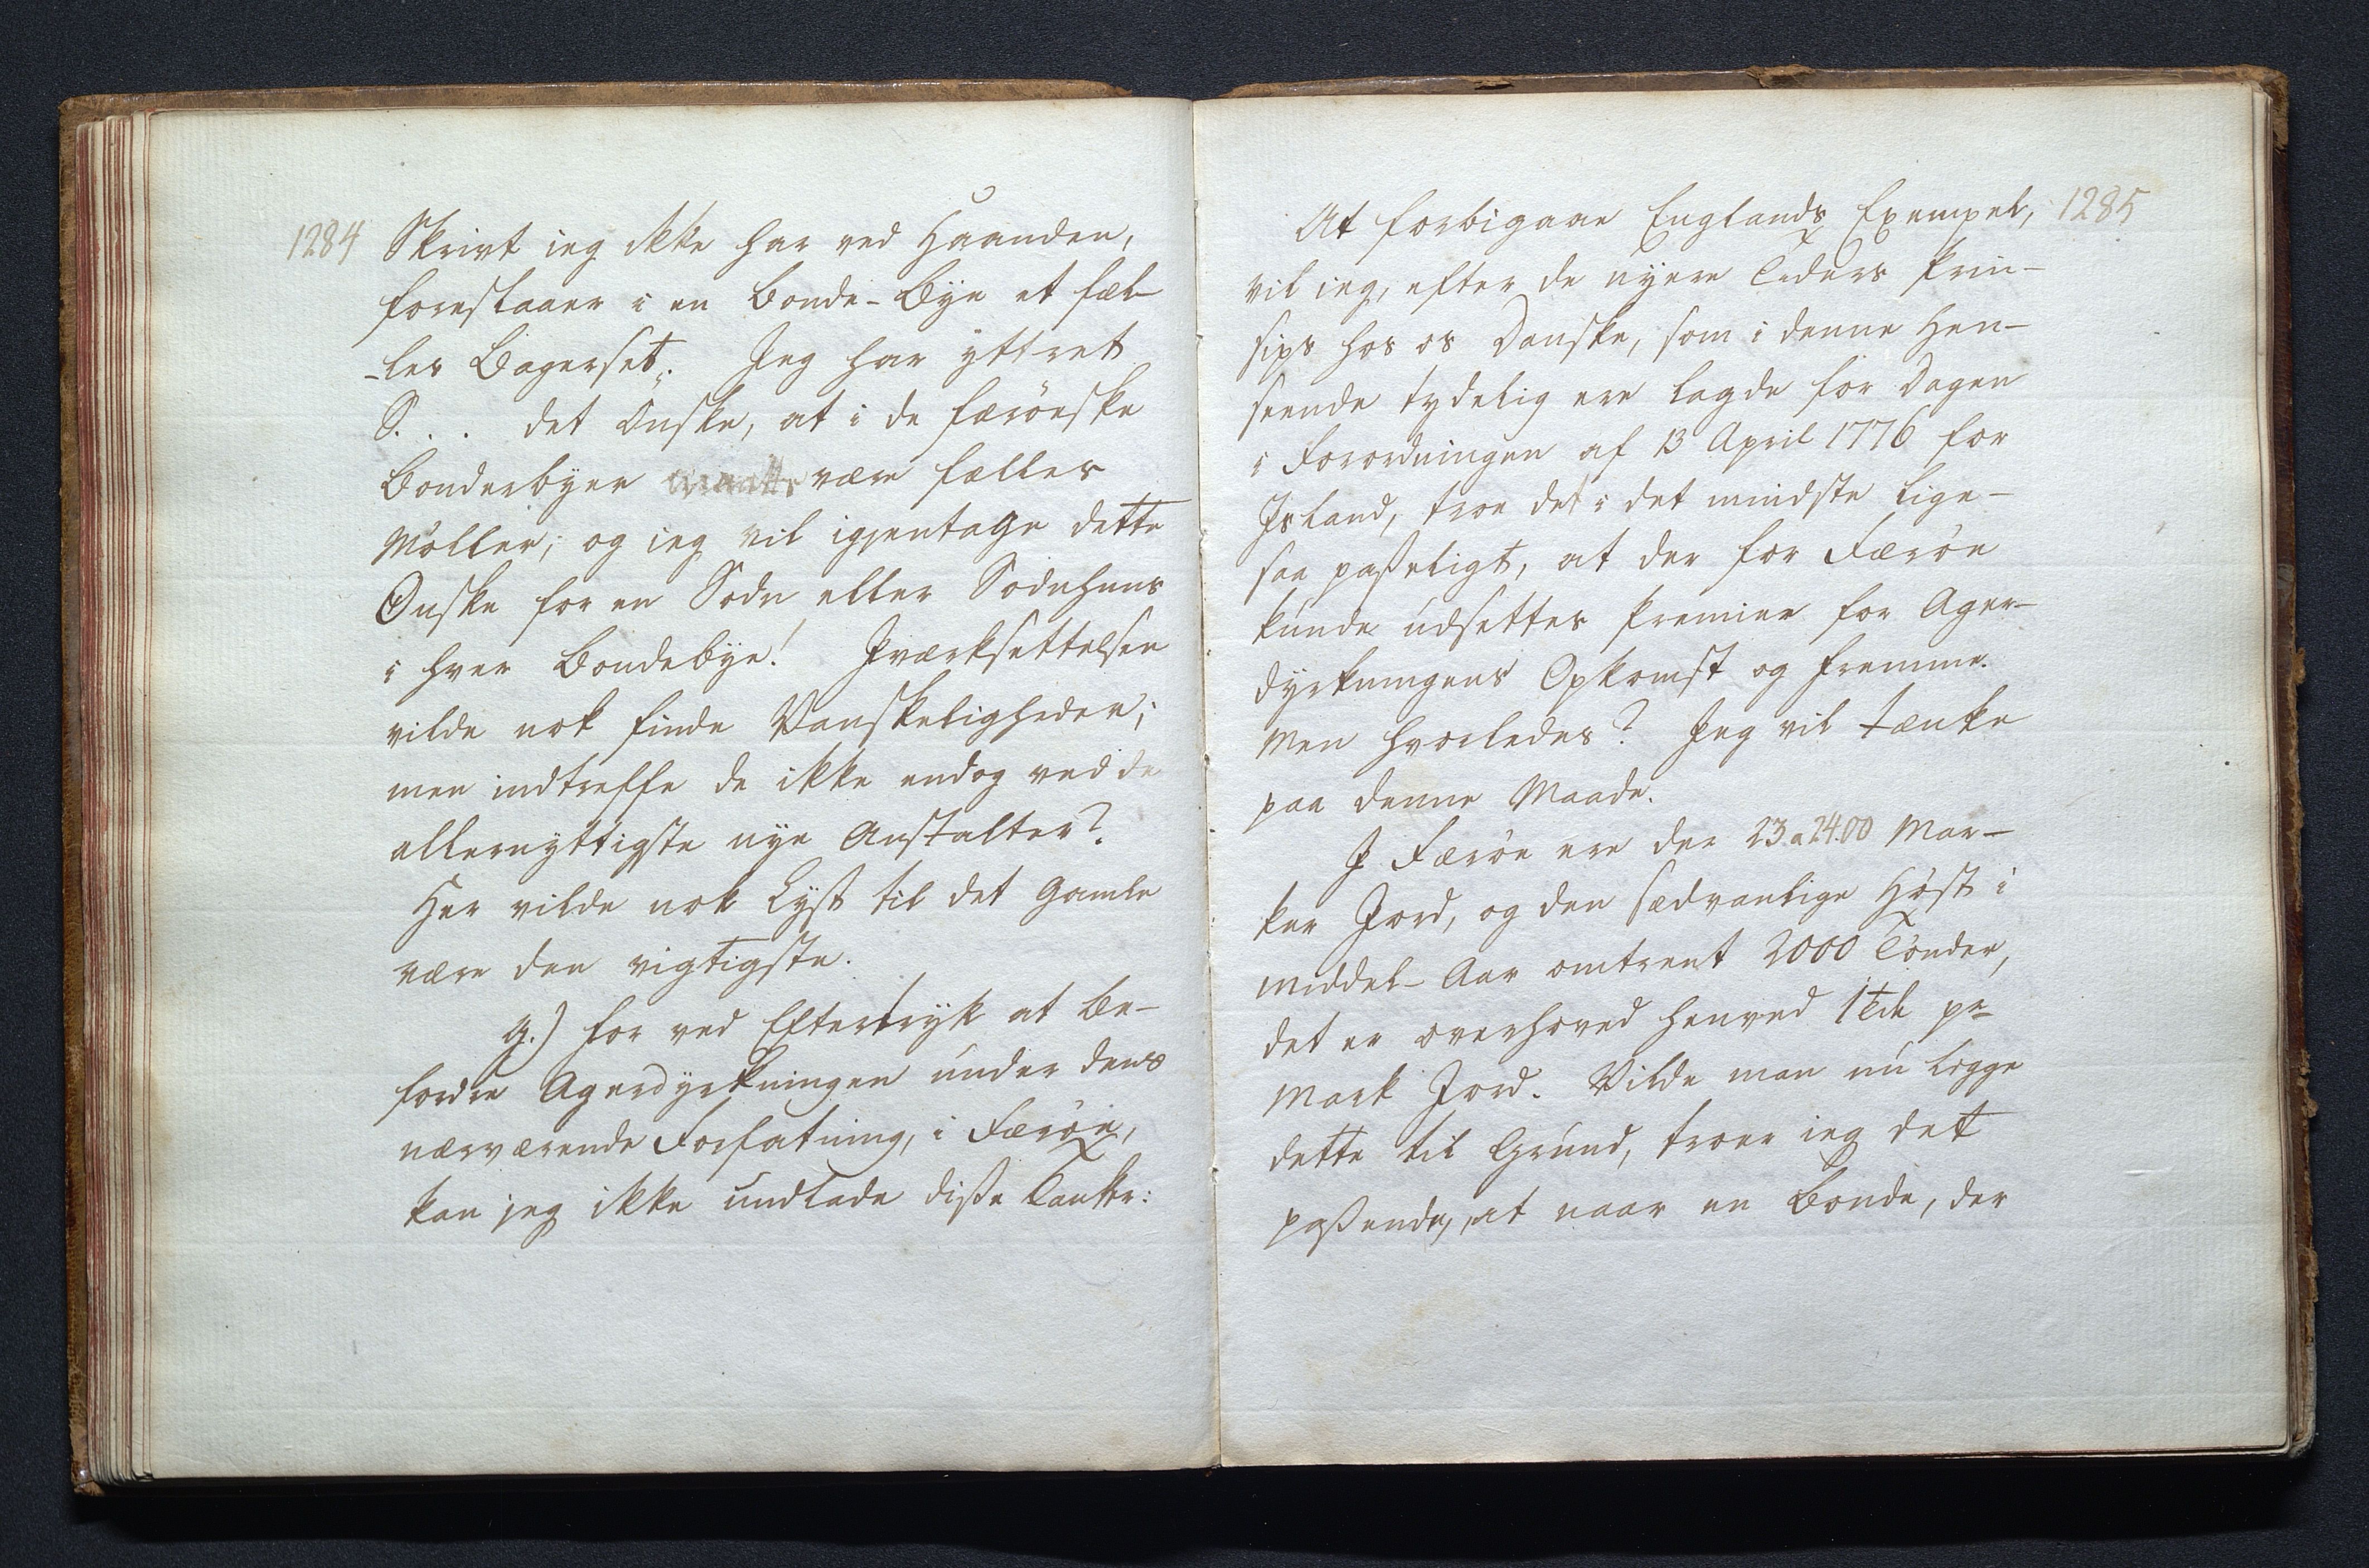 1284
Skrivt ieg ikke har ved Haanden,
foreslaaer i en Bonde-Bye et fæl-
-les Bagerset". Jeg har yttret
S. . . det Ønske, at i de færöeske
Bonderbyer maatte være fælles
Møller; og ieg vil igjentage dette
Ønske for en Sodn eller Sodnhuus
i hver Bondebye! Iværksettelsen
vilde nok finde Vanskeligheder;
men indtreffe de ikke endog ved de
allernyttigste nye Anstalter?
Her vilde nok Lyst til det Gamle
være den vigtigste.
g.) for ved Eftertryk at be-
fordre Agerdyrkningen under dens
nærværende Forfatning, i Færöe,
kan jeg ikke undlade diße Tanker:
1285
At forbigaae Englands Exempel,
vil ieg, efter de nyere Tiders Prin-
sips hos os Danske, som i denne Hen-
seende tydelig ere lagde for Dagen
i Forordningen af 13 April 1776 for
Island, troe det i det mindste lige-
saa paßeligt, at der for Færöe
kunde udsettes Premier for Ager-
dyrkningens Opkomst og Fremme.
Men hvorledes? Jeg vil tænke
paa denne Maade.
I Færöe ere der 23 a 24.00 Mar-
ker Jord, og den sædvanlige Höst i
middel-Aar omtrent 2000 Tönder,
det er overhoved henved 1 Td pr
Mark Jord. Vilde man nu ligge
dette til Grund, troer ieg det
paßende, at naar en Bonde, der